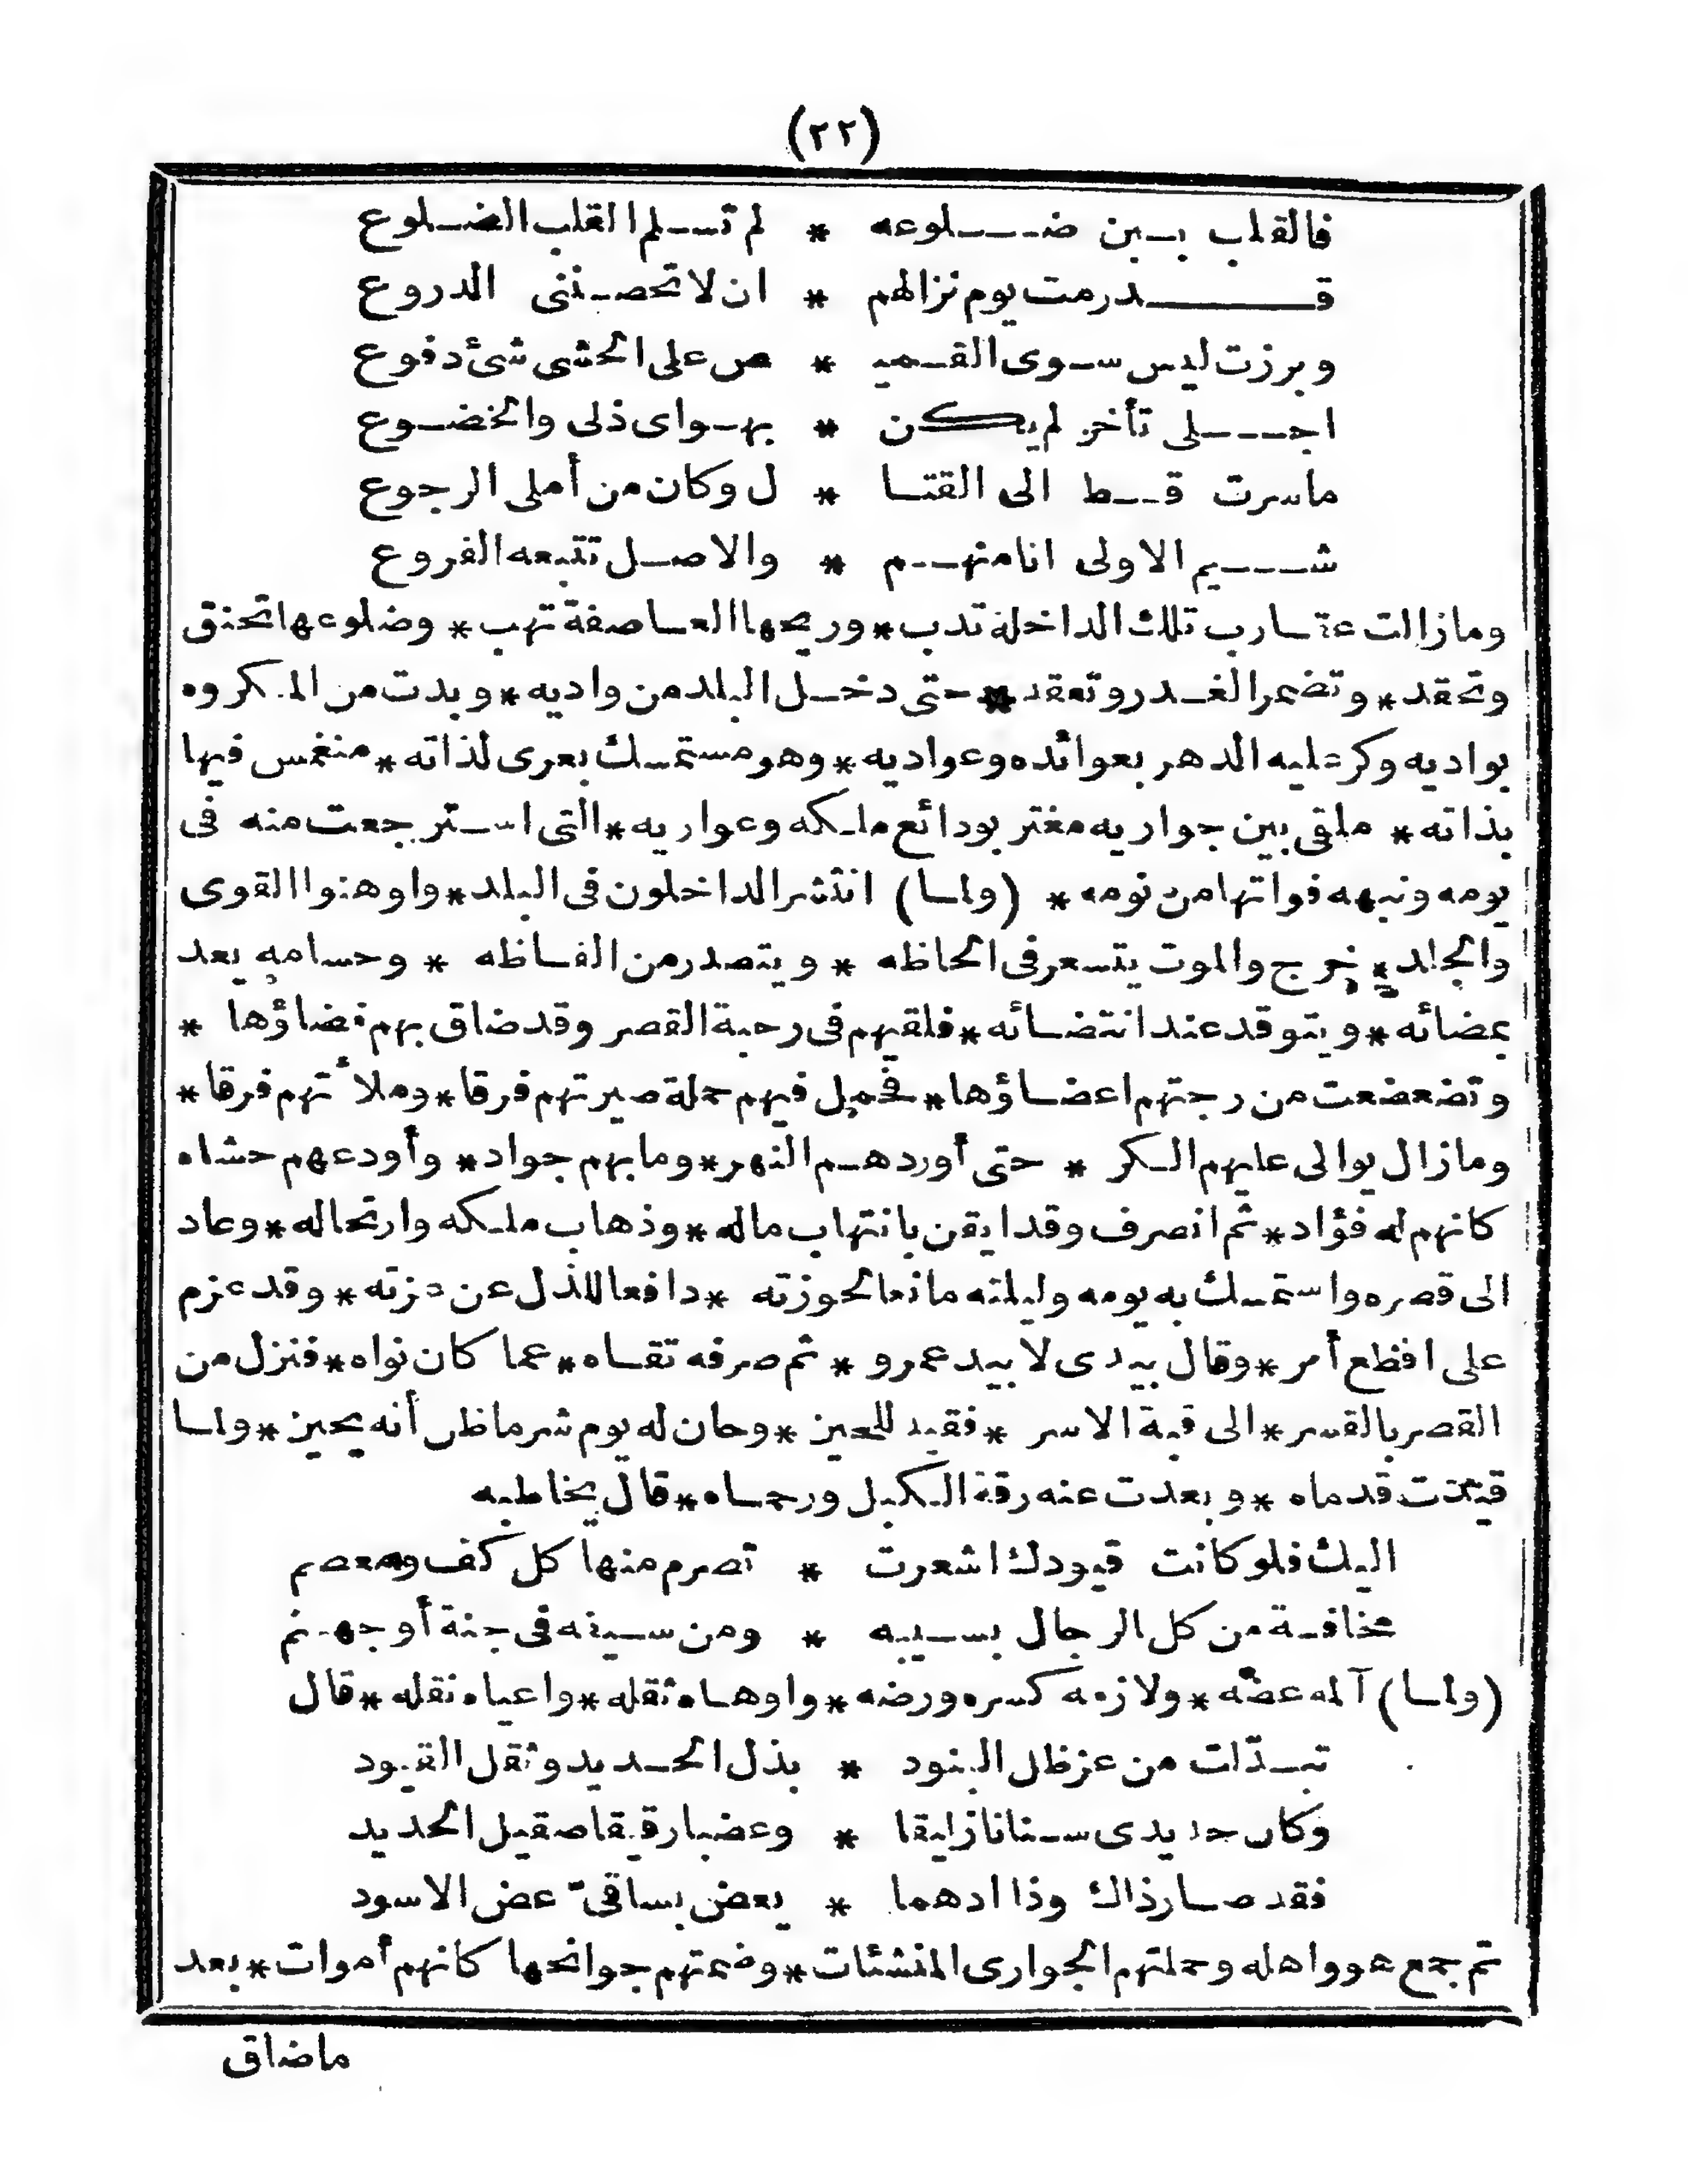 (٢٢)
فالقلب بين ضلوعه * لم تسلم القلب الضلوع
قدرمت يوم نزالهم * ان لا تحصننى الدروع
وبرزت ليس سوى القميـ * ص على الحشى شئ دفوع
اجلى تأخر لم يكن * بهواى ذلى والخضوع
ماسرت قط الى القتا * ل وكان من أملى الرجوع
شيم الاولى انا منهم * والاصل تتبعه الفروع
ومازالت عقارب تلك الداخلة تدب * وريحها العاصفة تهب * وضلوعها تحنق
وتحقد * وتضمر الغدر وتعقد * حتى دخل البلد من واديه * وبدت من المكروه
بواديه وكر عليه الدهر بعوائده وعواديه * وهو مستمسك بعرى لذاته * منغمس فيها
بذاته * ملقى بين جواريه مغتر بودائع ملكه وعواريه * التى استرجعت منه فى
يومه ونبهه فواتها من نومه * (ولما) انتشر الداخلون فى البلد * واوهنوا القوى
والجلد * خرج والموت يتسعر فى الحاظه * ويتصدر من الفاظه * وحسامه يعد
بمضائه * ويتوقد عند انتضائه * فلقيهم فى رحبة القصر وقد ضاق بهم فضاؤها *
وتضعضعت من رجتهم اعضاؤها * فحمل فيهم حملة صيرتهم فرقا * وملأتهم فرقا *
ومازال يوالى عليهم الكر * حتى أوردهم النهر * وما بهم جواد * وأودعهم حشاه
كانهم له فؤاد * ثم انصرف وقد ايقن بانتهاب ماله * وذهاب ملكه وارتحاله * وعاد
الى قصره واستمسك به يومه وليلته مانعا لحوزته * دافعا للذل عن عزته * وقد عزم
على افظع أمر * وقال بيدى لا بيد عمرو * ثم صرفه تقاه * عما كان نواه * فنزل من
القصر بالقسر * الى قبة الاسر * فقيد للحين * وحان له يوم شر ماظن أنه يحين * ولما
قيدت قدماه * وبعدت عنه رقة الكبل ورحماه * قال يخاطبه
اليك فلو كانت قيودك اشعرت * تصرم منها كل كف ومعصم
مخافة من كل الرجال بسيبه * ومن سيفه فى جنة أو جهنم
(ولما) آلمه عضه * ولازمه كسره ورضه * واوهاه ثقله * واعياه نقله * قال
تبدّلت من عز ظل البنود * بذل الحديد وثقل القيود
وكان حديدى سنانا زليقا * وعضبا رقيقا صقيل الحديد
فقد صار ذاك وذا ادهما * يعض بساقىّ عض الاسود
ثم جمع هو واهله وحملتهم الجوارى المنشئات * وضمتهم جوانحها كانهم أموات * بعد
ماضاق